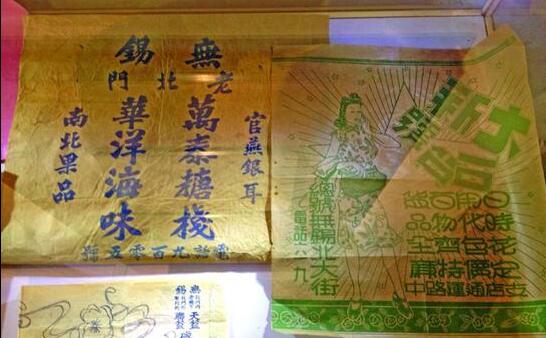 無錫
老北門
官燕銀耳
萬泰糖棧
華洋海味
南北果品
電話九百零五號
大
新
日用百貨
時代物品
花色齊全
定價特廉
支店通運路中
總號無錫北大街
電話六九
無錫